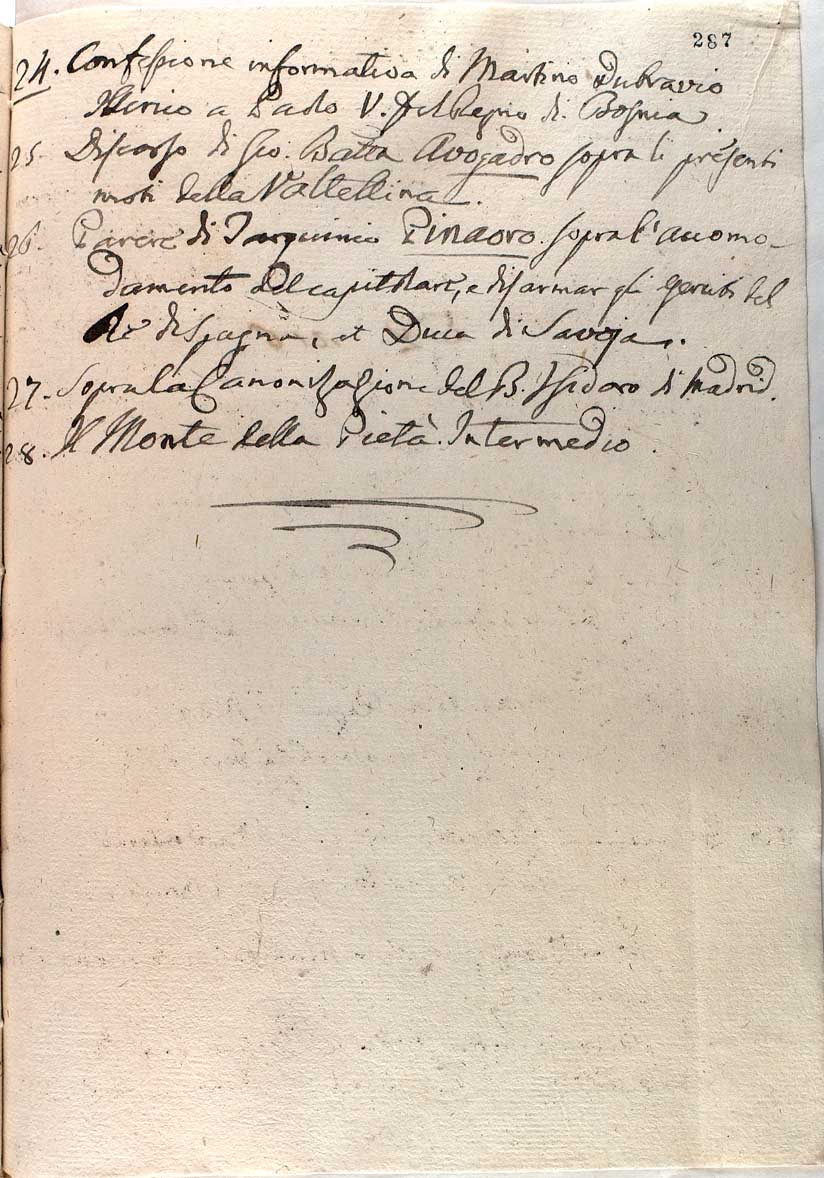 287
24. Confessione informativa di Martino Dubravio
Illirico a Paolo V. del Regno di Bosnia
25. Discorso di Gio. Batta Avogadro sopra li presenti
moti della Valtellina.
26. Parere di Tarquinio Pinaoro sopra l'accomo-
damento del capitolare, e disarmar gli eserciti del
Rè di Spagna, et Duca di Savoja.
27. Sopra la Canonizazione del B. Isidoro di Madrid.
28. Il Monte della Pietà Intermedio.